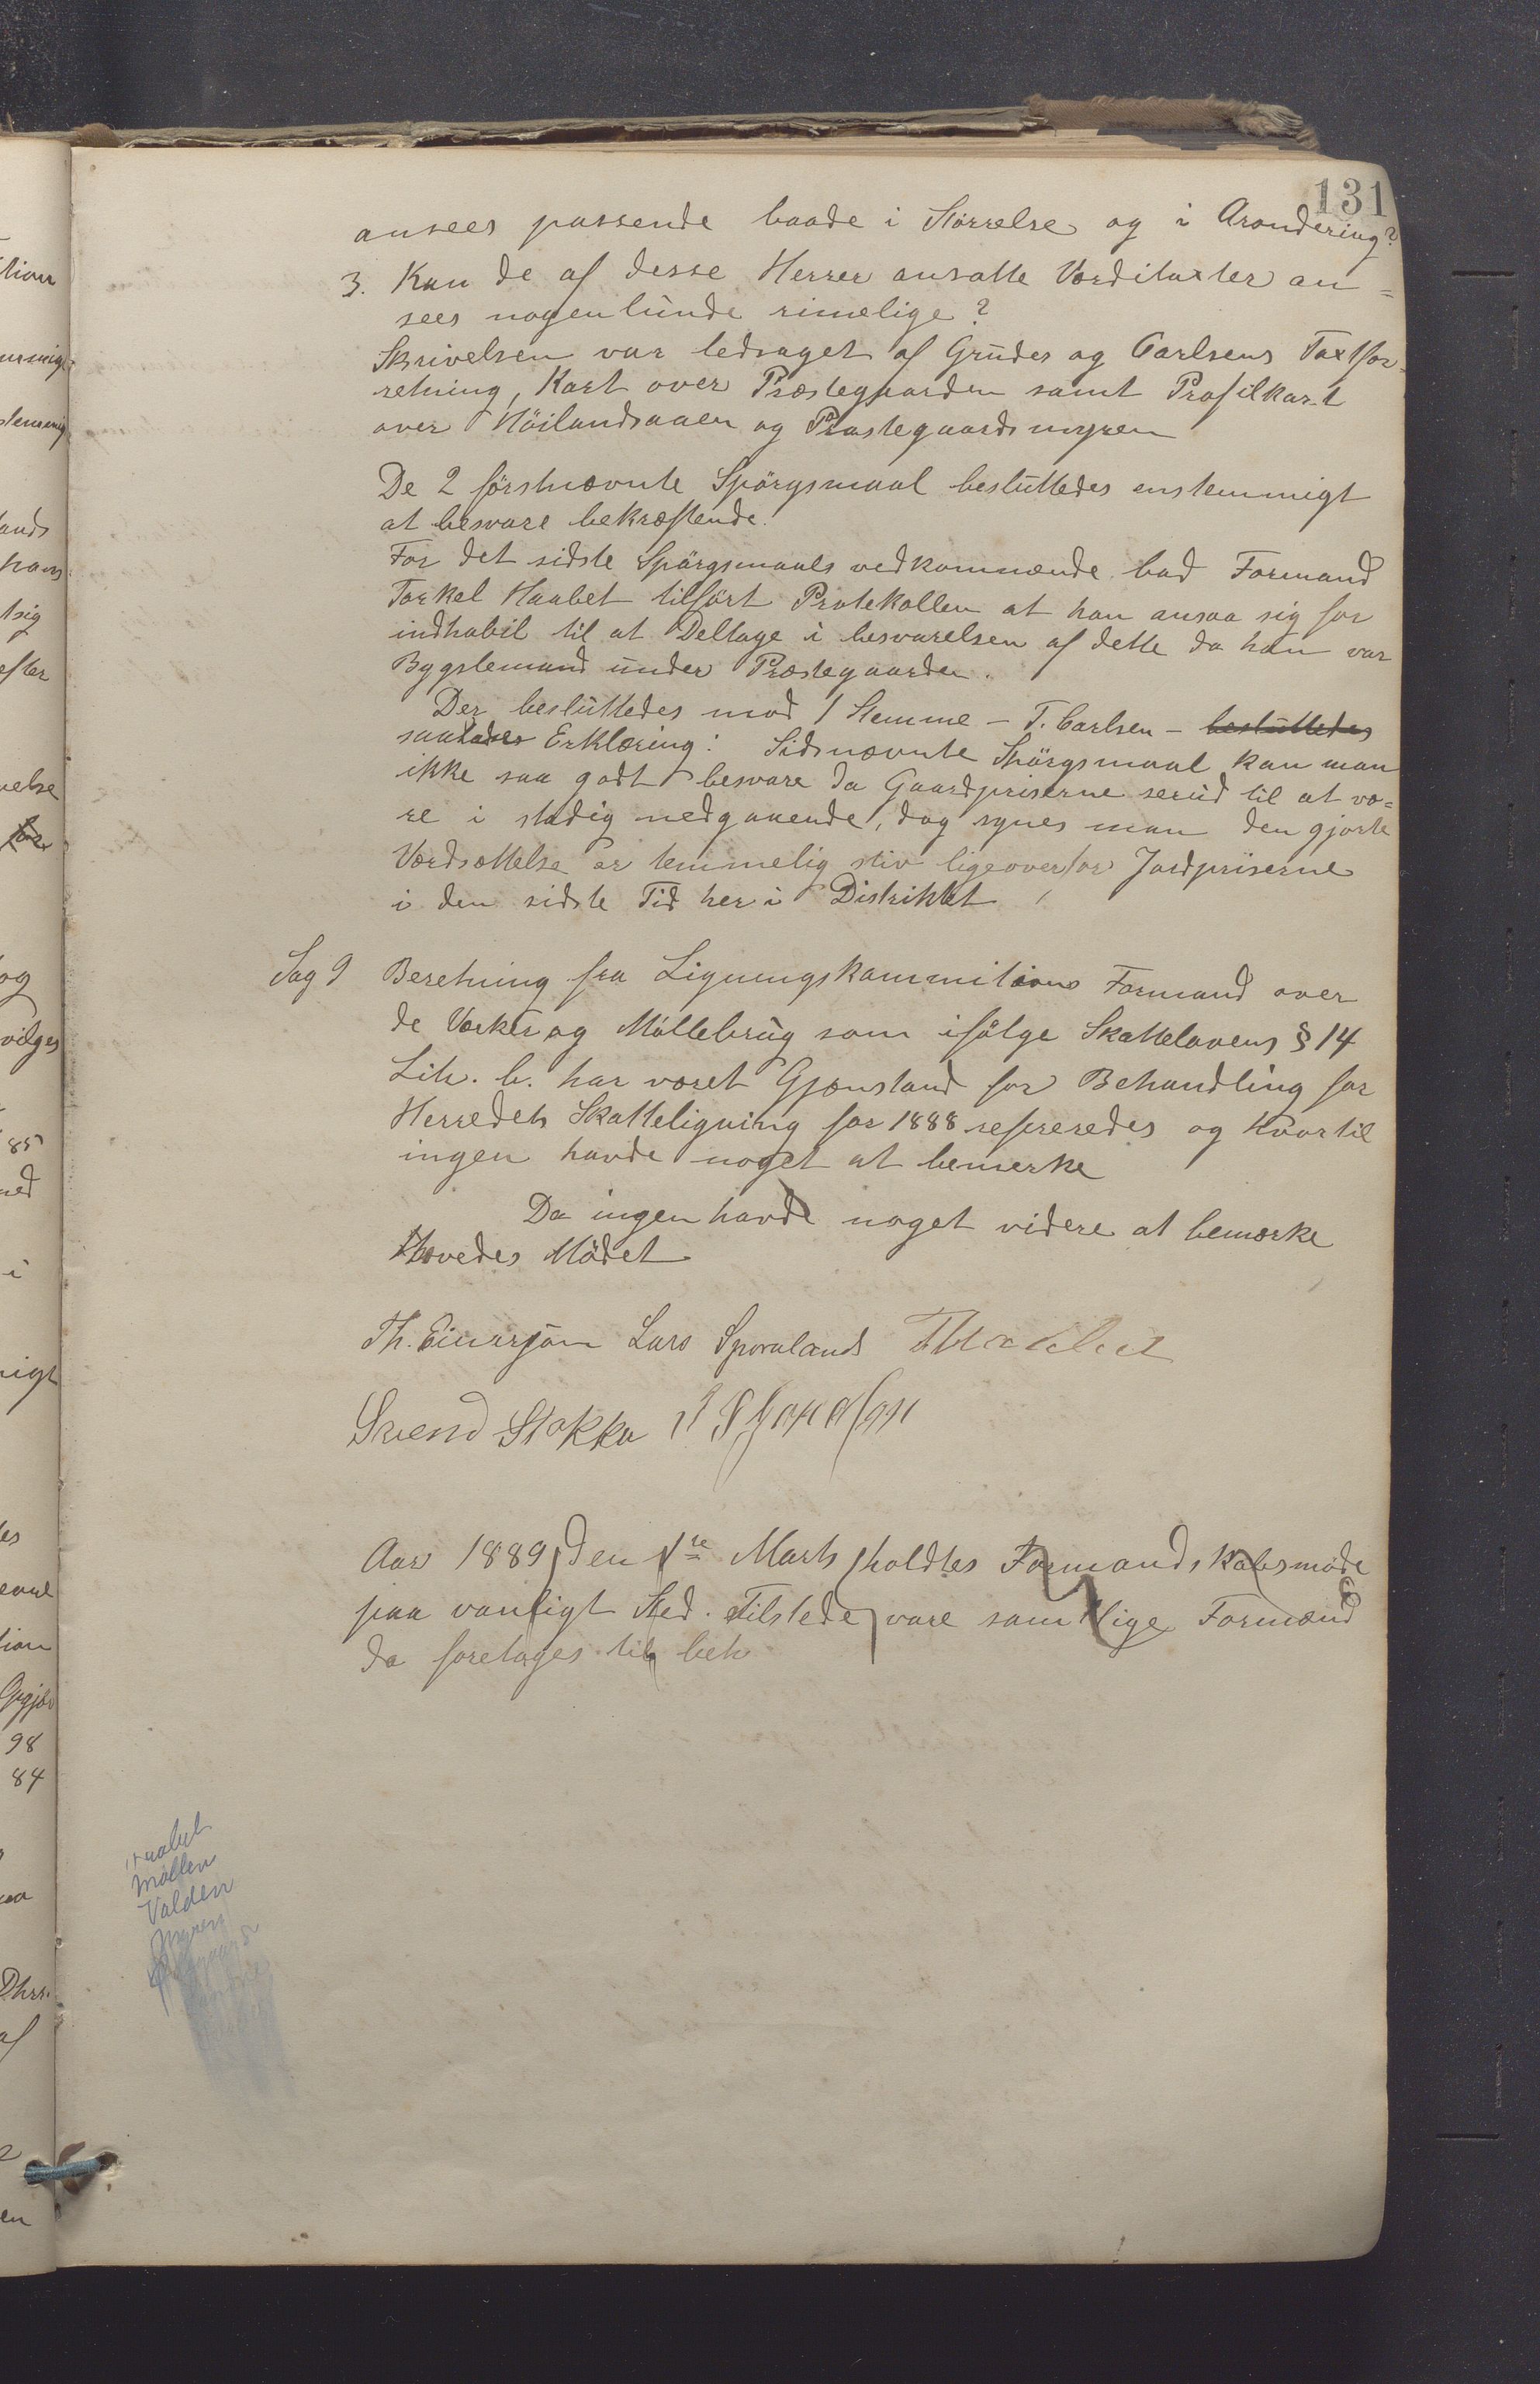 131
ansees passende baade i Störrelse og i Arondering?
3. Kan de af desse Herrer ansatte Værditaxter an=
sees nogenlunde rimelige?
Skrivelsen var ledsaget af Grudes og Carlsens Taxtfor=
retning, Kart over Præstegaarden samt Profilkart
over Höilandsaaen og Præstegaardsmyren
De 2 förstnævnte Spörgsmaal besluttedes enstemmigt
at besvare bekræftende.
For det sidste Spörgsmaals vedkommende bad Formand
Torkel Haabet tilfört Protekollen at han ansaa sig for
indhabil til at Deltage i besvarelsen af dette da han var
Bygslemand under Præstegaarden.
Der besluttedes mod 1 Stemme – T. Carlsen – besluttedes
saadan Erklæring: Sidsnævnte Spörgsmaal kan man
ikke saa godt besvare da Gaardpriserne serud til at væ=
re i stadig nedgaaende, dog synes man den gjorte
Værdsættelse er temmelig stiv ligeoverfor Jordpriserne
i den sidste Tid her i Distriktet
Sag 9 Beretning fra Ligningskommitions Formand over
de Værker og Möllebrug som ifölge Skattelovens § 14
Litr. b. har været Gjenstand for Behandling for
Herredets Skatteligning for 1888 refereredes og Hvortil
ingen havde noget at bemerke
Da ingen havde noget videre at bemærke
Hævedes Mödet
Th. Einersjön Lars Sporaland T Haabet
Svend Stokka
Aar 1889 den 1re Marts holdtes Formandskabsmöde
paa vanligt Sted. Tilstede vare samtlige Formænd
da foretoges til beh
Haabet
Möllen
Valden
Myren